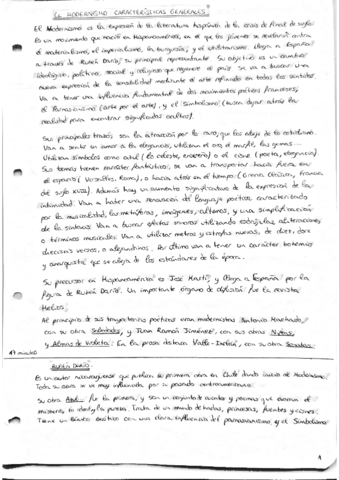 EL MODERNISMO CARACTERÍSTICAS GENERALES
El Modernismo es la expresión de la literatura hispánica de la crisis de final de siglo.
Es un movimiento que nació en Hispanoamérica, en el que los jóvenes se rebelaron contra
el materialismo, el imperialismo, la burguesía, y el utilitarismo. Llega a España
a través de Rubén Darío, su principal representante. Su objetivo es un cambio
ideológico, político, social y religioso que regenere el país. Se va a buscar una
nueva expresión de la sensibilidad mediante el arte refinado en todos los sentidos.
Va a tener una influencia fundamental de dos movimientos poéticos franceses,
el Parnasianismo (arte por el arte), y el Simbolismo (buscan dejar atrás la
realidad para encontrar significados ocultos).
Sus principales son la atracción por lo raro, que los aleja de lo cotidiano.
Van a sentir un amor a la elegancia, utilizan el oro, el marfil, las gemas...
Utilizan símbolos como azul (lo celeste, ensueño) o el cisne (poeta, elegancia)
Sus temas tienen se van a transportar hacia fuera, en
el espacio (Versalles, Roma), o hacia atrás en el tiempo (Grecia Clásica, Francia
del siglo XVIII). Además hay un aumento significativo de la expresión de la
intimidad. Van a hacer una renovación del lenguaje poético caracterizado
por la musicalidad, las metáforas, imágenes, cultismos, y una simplificación
de la sintaxis. Van a buscar efectos sonoros utilizando aliteraciones
o términos musicales. Van a utilizar metros y estrofas nuevas, de diez, doce
dieciséis versos, o alejandrinos. Por último van a tener un carácter bohemio
y anarquista que se aleja de los estándares de la época.
Su precursor en Hispanoamérica es José Martí, y llega a España por la
figura de Rubén Darío. Un importante órgano de difusión fue la revista
Helios.
Al principio de sus trayectorias poéticas eran modernistas Antonio Machado,
con su obra Soledades, y Juan Ramón Jiménez, con sus obras Ninfeas,
y Almas de Violeta. En la prosa destaca Valle-Inclán, con su obra Sonatas.
RUBÉN DARÍO
Es un autor nicaragüense que publica su primera obra en Chile dando inicio al Modernismo.
Toda su obra se va muy influenciada por su pasado
Su obra Azul fue la primera, y son un conjunto de cuentos y poemas que evocan el
misterio, lo ideal y la pureza. Trata de un mundo de hadas, princesas, fuentes y cisnes.
Tiene un tinte exótico con una clara influencia del parnasianismo, y el simbolismo
1